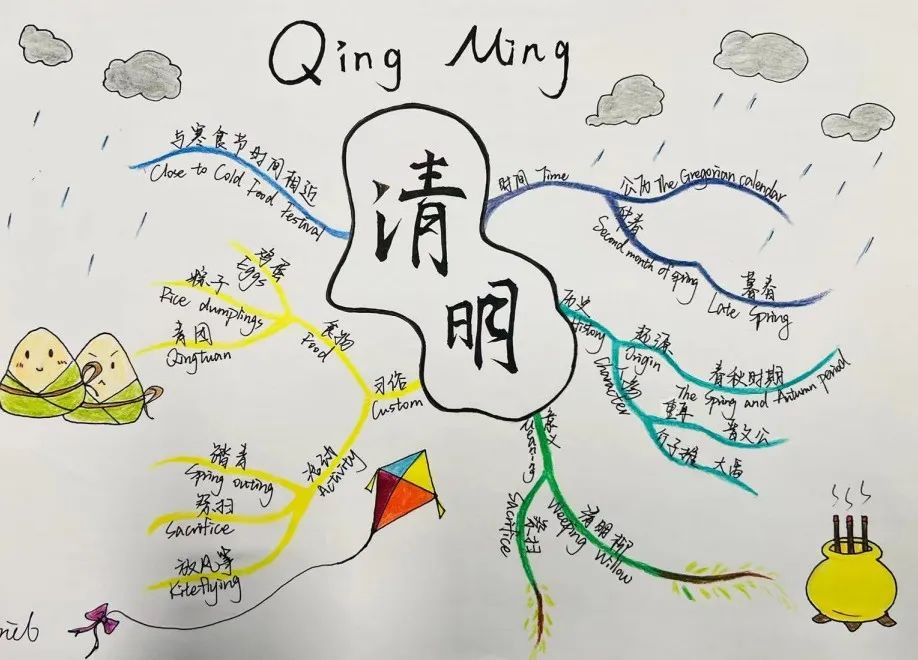 Qing Ming
清
明
与寒食节时间相近
Close to Cold Food Festival
鸡蛋
Eggs
粽子
Rice dumplings
青团
Qingtuan
食物
Food
习俗
Custom
活动
Activity
踏青
Spring outing
祭扫
Sacrifice
放风筝
Kiteflying
时间 Time
公历 The Gregorian calendar
仲春
Second month of spring
暮春
Late Spring
历史
History
起源
Origin
春秋时期
The Spring and Autumn period
人物
Character
重耳
晋文公
介子推
大禹
意义
Meaning
祭扫
Sacrifice
清明柳
Weeping Willow